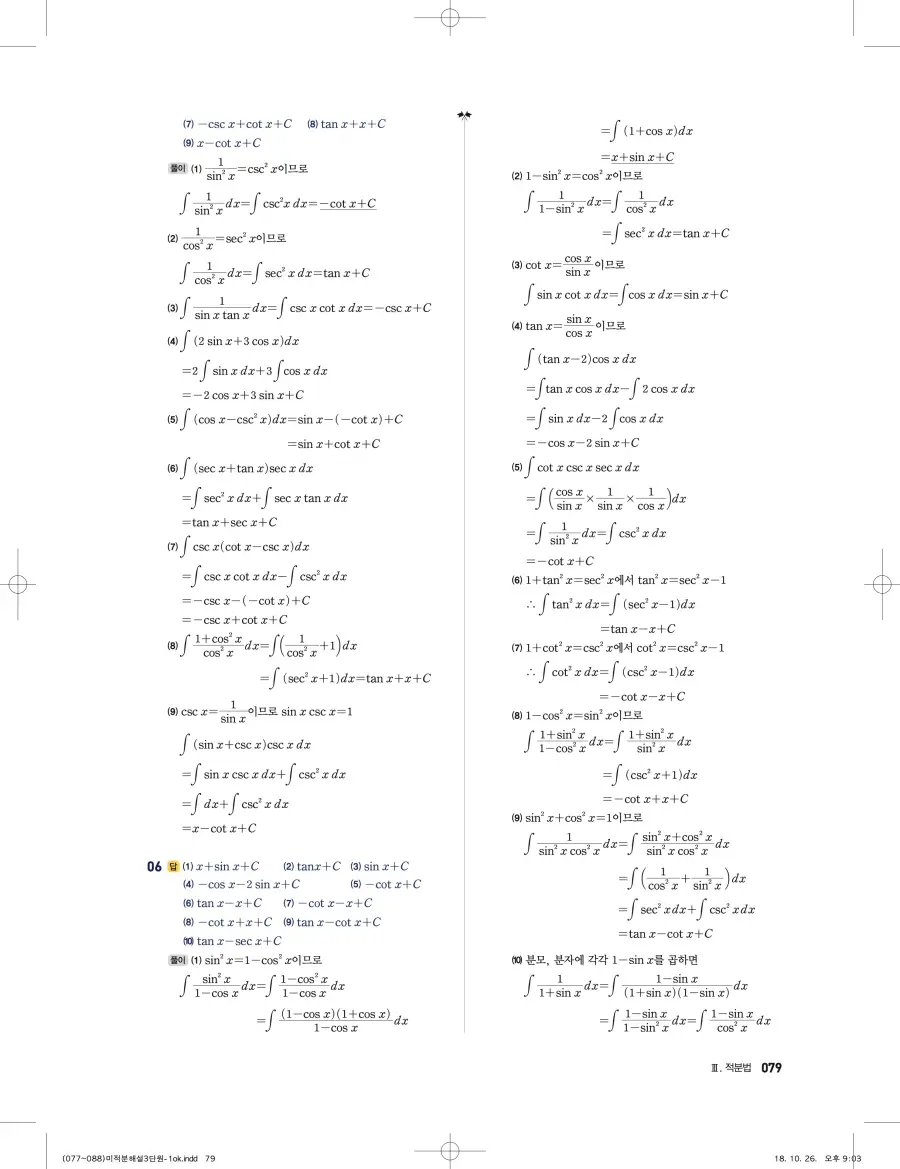 (7) −csc x+cot x+C (8) tan x+x+C
(9) x−cot x+C
풀이 (1) 1/sin² x=csc² x이므로
∫ 1/sin² x dx=∫ csc²x dx=−cot x+C
(2) 1/cos² x=sec² x이므로
∫ 1/cos² x dx=∫ sec² x dx=tan x+C
(3) ∫ 1/(sin x tan x) dx=∫ csc x cot x dx=−csc x+C
(4) ∫ (2 sin x+3 cos x)dx
=2∫ sin x dx+3∫cos x dx
=−2 cos x+3 sin x+C
(5) ∫ (cos x−csc² x)dx=sin x−(−cot x)+C
=sin x+cot x+C
(6) ∫ (sec x+tan x)sec x dx
=∫ sec² x dx+∫ sec x tan x dx
=tan x+sec x+C
(7) ∫ csc x(cot x−csc x)dx
=∫ csc x cot x dx−∫ csc² x dx
=−csc x−(−cot x)+C
=−csc x+cot x+C
(8) ∫ (1+cos² x)/cos² x dx=∫(1/cos² x+1)dx
=∫ (sec² x+1)dx=tan x+x+C
(9) csc x=1/sin x이므로 sin x csc x=1
∫ (sin x+csc x)csc x dx
=∫ sin x csc x dx+∫ csc² x dx
=∫ dx+∫ csc² x dx
=x−cot x+C
06 답 (1) x+sin x+C (2) tanx+C (3) sin x+C
(4) −cos x−2 sin x+C (5) −cot x+C
(6) tan x−x+C (7) −cot x−x+C
(8) −cot x+x+C (9) tan x−cot x+C
(10) tan x−sec x+C
풀이 (1) sin² x=1−cos² x이므로
∫ sin² x/(1−cos x) dx=∫ (1−cos² x)/(1−cos x) dx
=∫ (1−cos x)(1+cos x)/(1−cos x) dx
=∫ (1+cos x)dx
=x+sin x+C
(2) 1−sin² x=cos² x이므로
∫ 1/(1−sin² x) dx=∫ 1/cos² x dx
=∫ sec² x dx=tan x+C
(3) cot x=cos x/sin x이므로
∫ sin x cot x dx=∫cos x dx=sin x+C
(4) tan x=sin x/cos x이므로
∫ (tan x−2)cos x dx
=∫tan x cos x dx−∫ 2 cos x dx
=∫ sin x dx−2∫cos x dx
=−cos x−2 sin x+C
(5) ∫ cot x csc x sec x dx
=∫ (cos x/sin x × 1/sin x × 1/cos x)dx
=∫ 1/sin² x dx=∫ csc² x dx
=−cot x+C
(6) 1+tan² x=sec² x에서 tan² x=sec² x−1
∴ ∫ tan² x dx=∫ (sec² x−1)dx
=tan x−x+C
(7) 1+cot² x=csc² x에서 cot² x=csc² x−1
∴ ∫ cot² x dx=∫ (csc² x−1)dx
=−cot x−x+C
(8) 1−cos² x=sin² x이므로
∫ (1+sin² x)/(1−cos² x) dx=∫ (1+sin² x)/sin² x dx
=∫ (csc² x+1)dx
=−cot x+x+C
(9) sin² x+cos² x=1이므로
∫ 1/(sin² x cos² x) dx=∫ (sin² x+cos² x)/(sin² x cos² x) dx
=∫ (1/cos² x+1/sin² x)dx
=∫ sec² xdx+∫ csc² xdx
=tan x−cot x+C
(10) 분모, 분자에 각각 1−sin x를 곱하면
∫ 1/(1+sin x) dx=∫ (1−sin x)/((1+sin x)(1−sin x)) dx
=∫ (1−sin x)/(1−sin² x) dx=∫ (1−sin x)/cos² x dx
Ⅲ. 적분법 079
(077~088)미적분해설3단원-1ok.indd 79
18. 10. 26. 오후 9:03